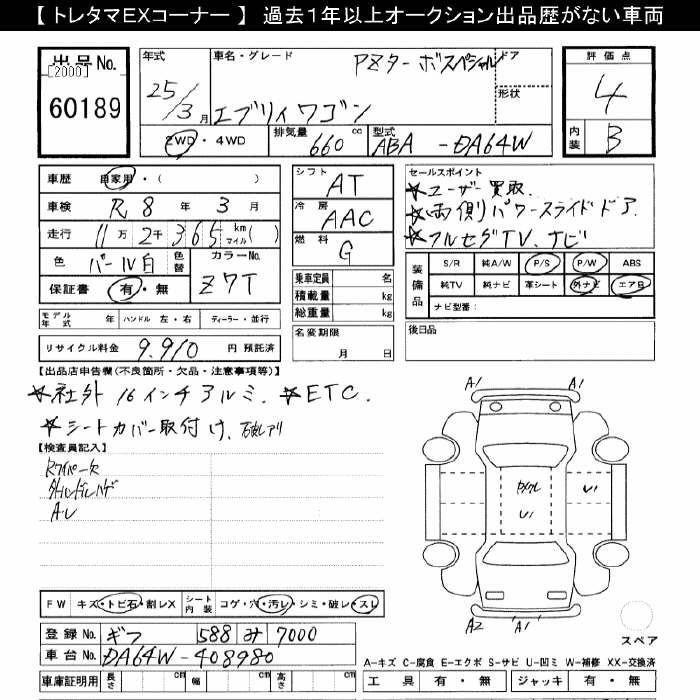 【 トレタマEXコーナー 】 過去1年以上オークション出品歴がない車両
出品No.
[2000]
60189
年式
25/3 月
車名・グレード
PZターボスペシャル
エブリィワゴン
ドア
形状
2WD・4WD
排気量
660 cc
型式
ABA - DA64W
評価点
4
内装
B
車歴 自家用・( )
車検 R 8 年 3 月
走行 11 万 2 千 3 6 5 km マイル( )
色 パール白 色替
カラーNo. Z7T
保証書 有・無
シフト AT
冷房 AAC
燃料 G
乗車定員 名
積載量 kg
総重量 kg
名変期限
月 日
セールスポイント
★ユーザー買取.
★両側パワースライドドア.
★フルセグTV、ナビ
装備品
S/R 純A/W P/S P/W ABS
純TV 純ナビ 革シート 外ナビ エアB
ナビ型番:
後日品
モデル年式 年 ハンドル 左・右 ディーラー・並行
リサイクル料金 9,910 円 預託済
【出品店申告欄(不良箇所・欠品・注意事項等)】
★社外16インチアルミ. ★ETC.
★シートカバー取付け.
【検査員記入】
A.U
A1 A1
U1
U1
A2 'A1'
スペア
FW キズ・トビ石・割レX シート内装 コゲ・穴・汚レ・シミ・破レ・スレ
登録No. ギフ 588 み 7000
車台No. DA64W-408980
車庫証明用 長さ cm 幅 cm 高さ cm
A-キズ C-腐食 E-エクボ S-サビ U-凹ミ W-補修 XX-交換済
工具 有・無 ジャッキ 有・無